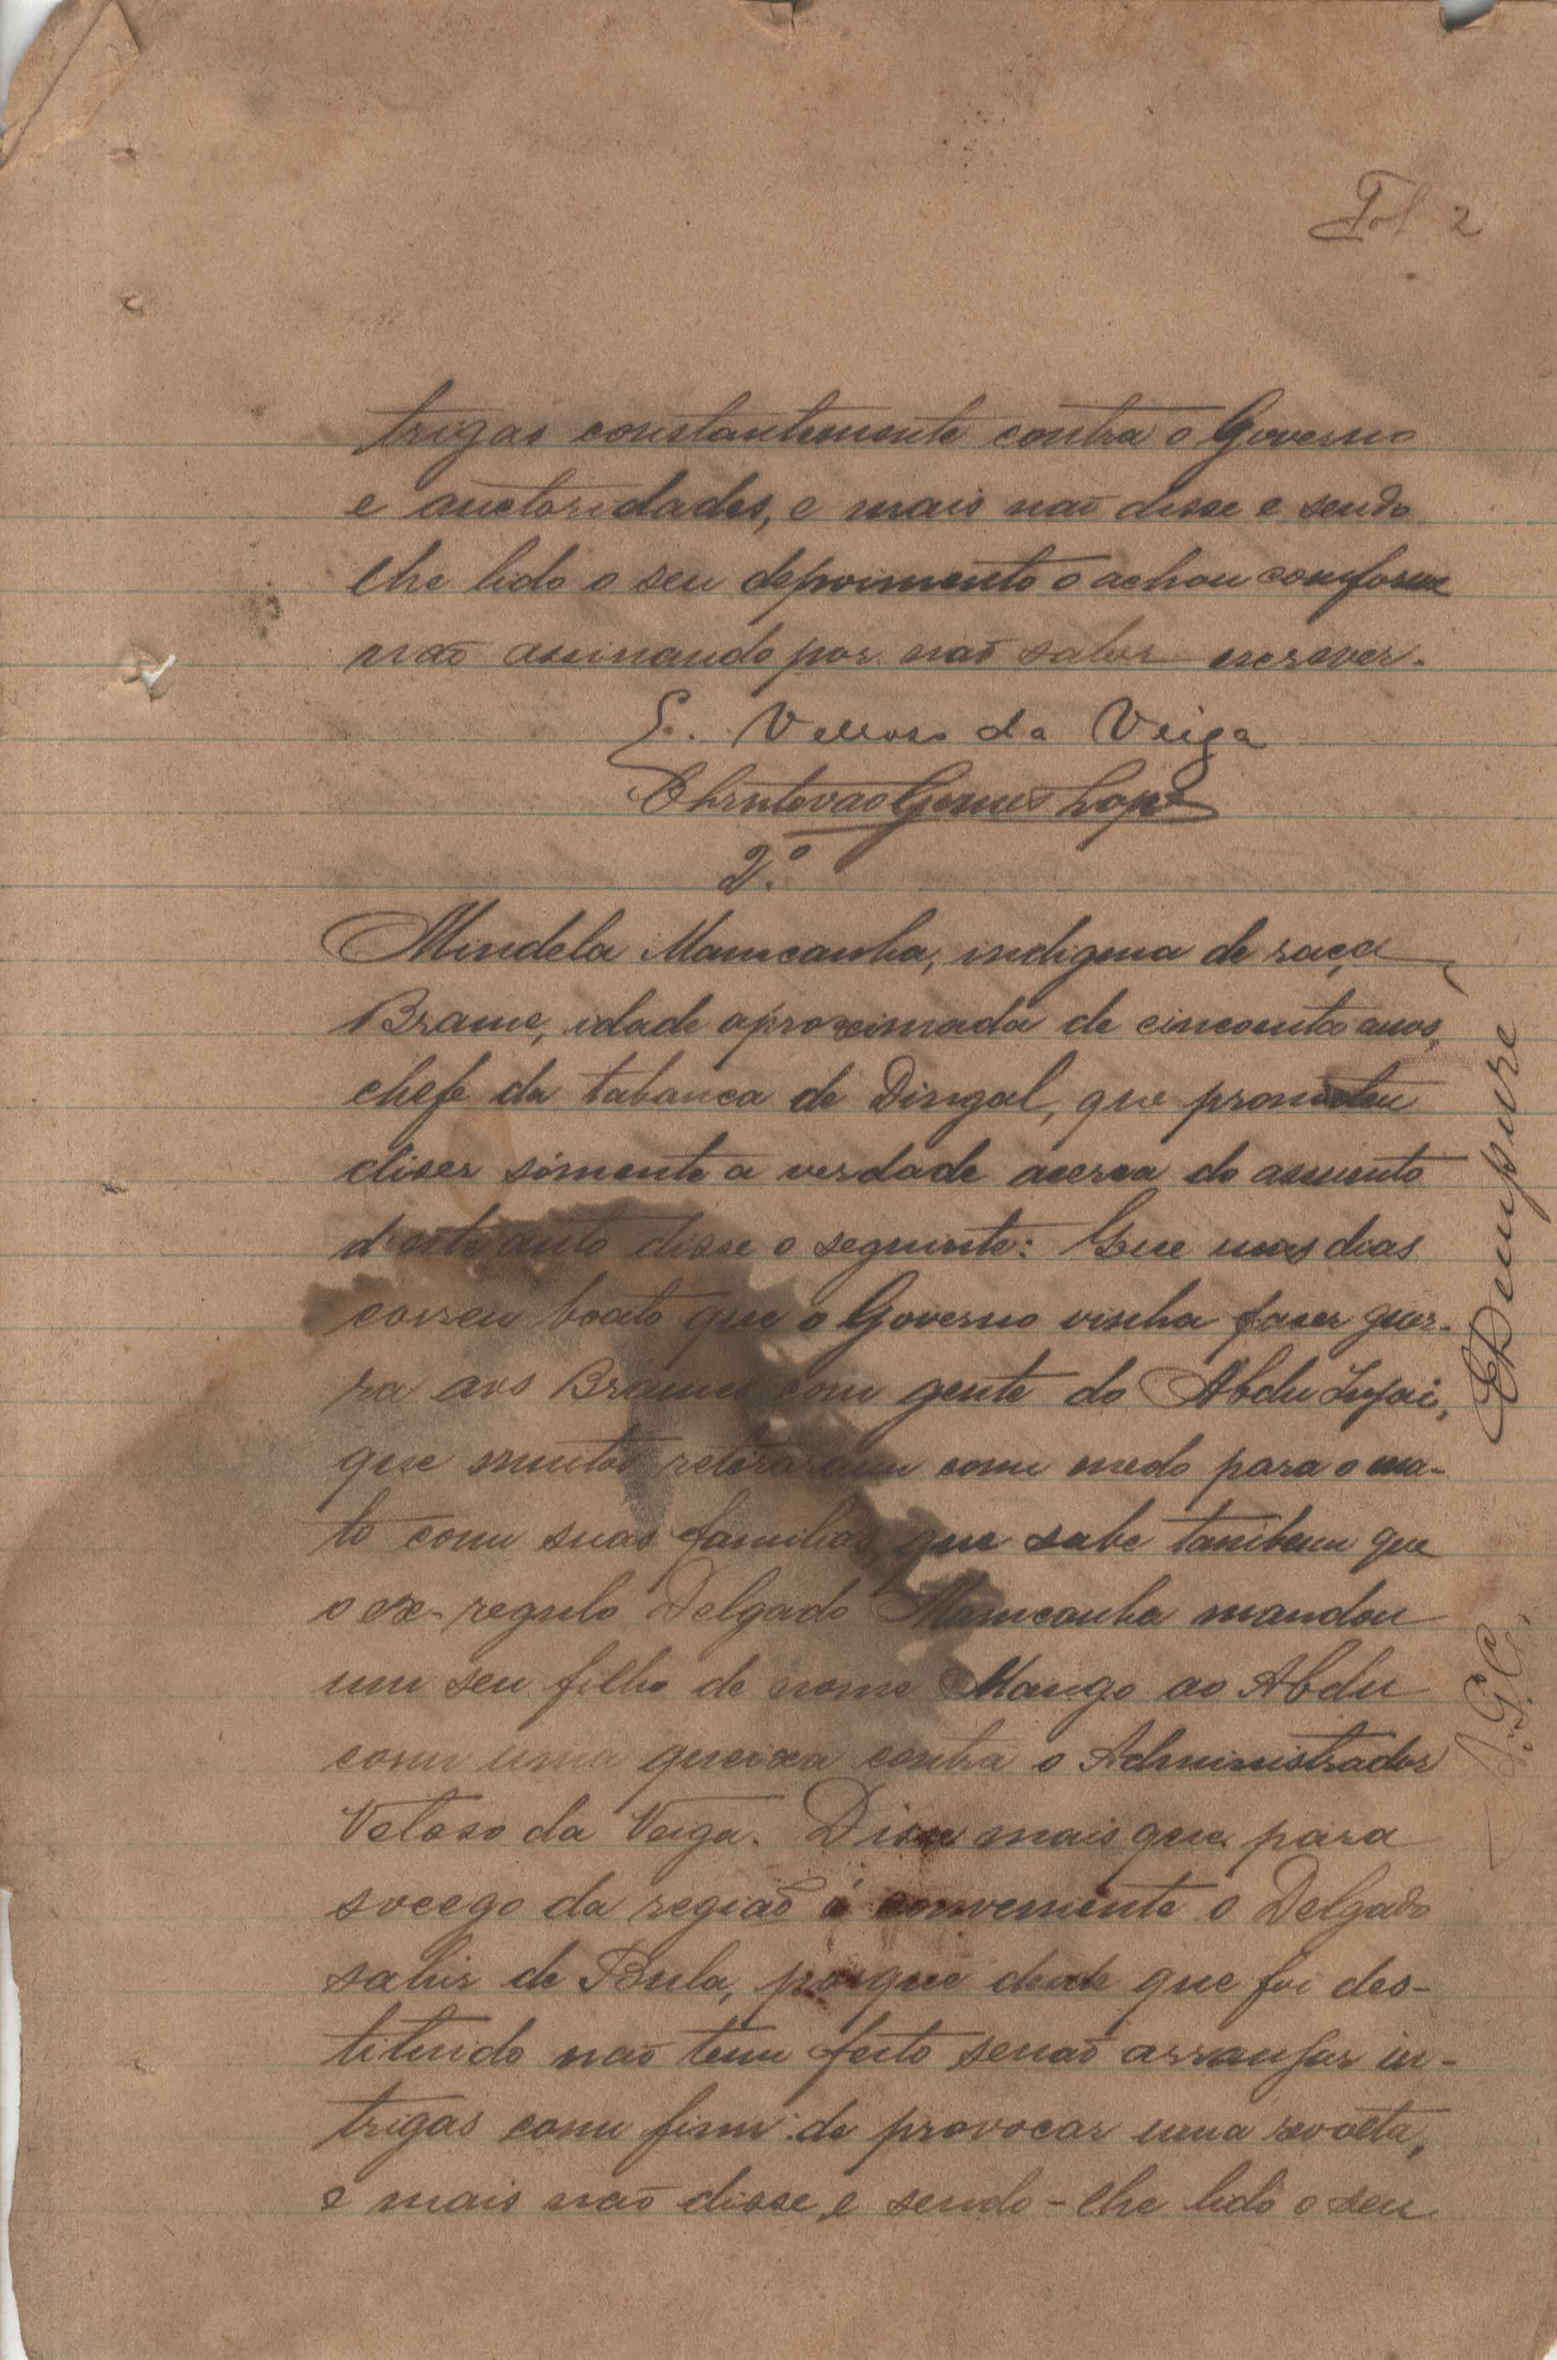 Fol 2
trigas constantemente contra o Governo
e auctoridades, e mais não disse e sendo
lhe lido o seu depoimento o achou conforme
não assinando por não saber escrever.
E. Velloso da Veiga
Christovão Gomes Lopes
2.º
Mindela Mamcanha, indigena de raça
Brame, idade aproximada de cincoenta anos,
chefe da tabanca de Dingal, que prometeu
diser sómente a verdade acerca do assunto
d'este auto disse o seguinte: Que uns dias
correu boato que o Governo vinha faser guer-
ra aos Brames com gente do Abdu Injai,
que muitos retiraram com medo para o ma-
to com suas familias, que sabe tambem que
o ex-regulo Delgado Mamcanha mandou
um seu filho de nome Mango ao Abdu
com uma queixa contra o Administrador
Veloso da Veiga. Disse mais que para
socego da região é conveniente o Delgado
sahir de Bula, porque desde que foi des-
tituido não tem feito senão arranjar in-
trigas com fim de provocar uma revolta,
e mais não disse, e sendo-lhe lido o seu